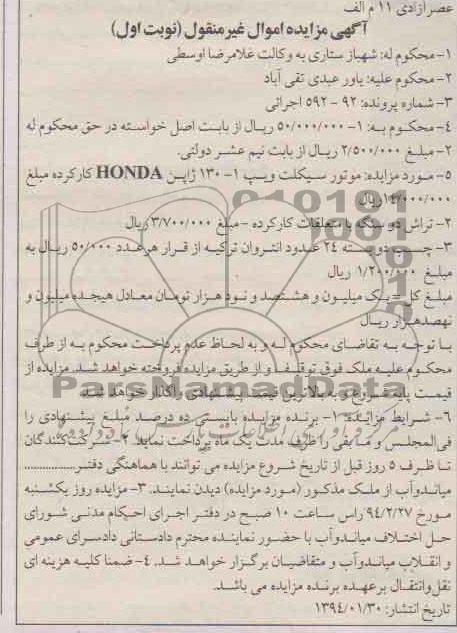 عصر ازادی ۱۱ م الف
آگهی مزایده اموال غیرمنقول (نوبت اول)
۱- محکوم له: شهباز ستاری به وکالت غلامرضا اوسطی
۲- محکوم علیه: یاور عبدی تقی آباد
۳- شماره پرونده: ۹۲ - ۵۹۲ اجرائی
۴- محکوم به: ۱- ۵۰/۰۰۰/۰۰۰ ریال از بابت اصل خواسته در حق محکوم له
۲- مبلغ ۲/۵۰۰/۰۰۰ ریال از بابت نیم عشر دولتی.
۵- مورد مزایده: موتور سیکلت ویپ ۱- ۱۳۰ ژاپن HONDA کارکرده مبلغ
۱۴/۰۰۰/۰۰۰ ریال
۲- تراش دو سنگه با متعلقات کارکرده - مبلغ ۳/۷۰۰/۰۰۰ ریال
۳- دسته ۲۴ عددی انتروان ترکیه از قرار هر عدد ۵۰/۰۰۰ ریال به
مبلغ ۱/۲۰۰/۰۰۰ ریال
مبلغ کل = یک میلیون و هشتصد و نود هزار تومان معادل هیجده میلیون و
نهصد هزار ریال
با توجه به تقاضای محکوم له و به لحاظ عدم پرداخت محکوم به از طرف
محکوم علیه ملک فوق توقیف و از طریق مزایده فروخته خواهد شد. مزایده از
قیمت پایه شروع و به بالاترین قیمت پیشنهادی واگذار خواهد شد.
۶- شرایط مزایده: ۱- برنده مزایده بایستی ده درصد مبلغ پیشنهادی را
فی المجلس و مابقی را ظرف مدت یک ماه پرداخت نماید. ۲- شرکت کنندگان
تا ظرف ۵ روز قبل از تاریخ شروع مزایده می توانند با هماهنگی دفتر................
میاندوآب از ملک مذکور (مورد مزایده) دیدن نمایند. ۳- مزایده روز یکشنبه
مورخ ۹۴/۲/۲۷ راس ساعت ۱۰ صبح در دفتر اجرای احکام مدنی شورای
حل اختلاف میاندوآب با حضور نماینده محترم دادستانی دادسرای عمومی
و انقلاب میاندوآب و متقاضیان برگزار خواهد شد. ۴- ضمنا کلیه هزینه ای
نقل وانتقال برعهده برنده مزایده می باشد.
تاریخ انتشار: ۱۳۹٤/۰۱/۳۰
ParsNamadData